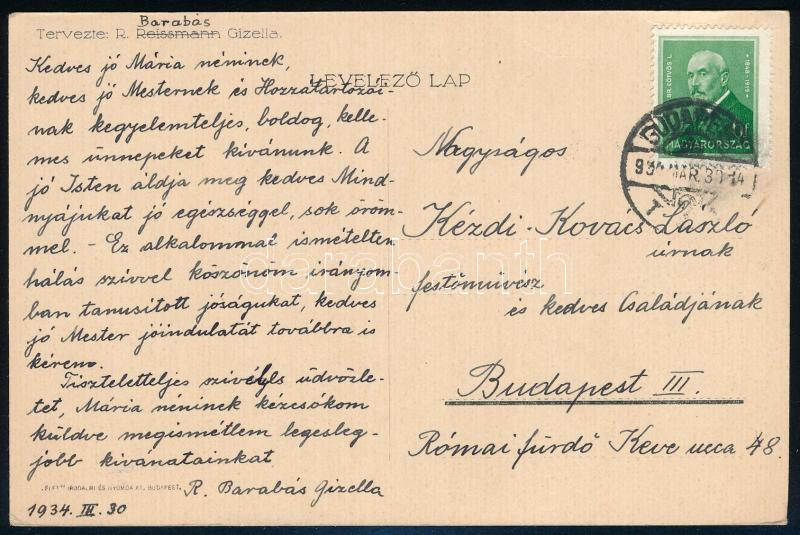 Barabás
Tervezte: R. Reissmann Gizella.
LEVELEZŐ LAP
Kedves jó Mária néninek,
kedves jó Mesternek és Hozzátartozái-
nak kegyelemteljes, boldog, kelle-
mes ünnepeket kivánunk. A
jó Isten áldja meg kedves Mind-
nyájukat jó egészséggel, sok öröm-
mel. - Ez alkalommal ismételten
hálás szivvel köszönöm irányom-
ban tanusított jóságukat, kedves
jó Mester jóindulatát továbbra is
kérem.
Tiszteletteljes szivélyes üdvözle-
tet, Mária néninek kézcsókom
küldve megismétlem legesleg-
jobb kivánatainkat
R. Barabás Gizella
1934. III. 30
IRODALMI ÉS NYOMDA RT. BUDAPEST.
Nagyságos
Kézdi-Kovács László
úrnak
festőművész
és kedves Családjának
Budapest III.
Római fürdő Keve ucca 48.
BR. EÖTVÖS L.
1848-1919
MAGYARORSZÁG
BUDAPEST
934 MÁR. 30
darabanth